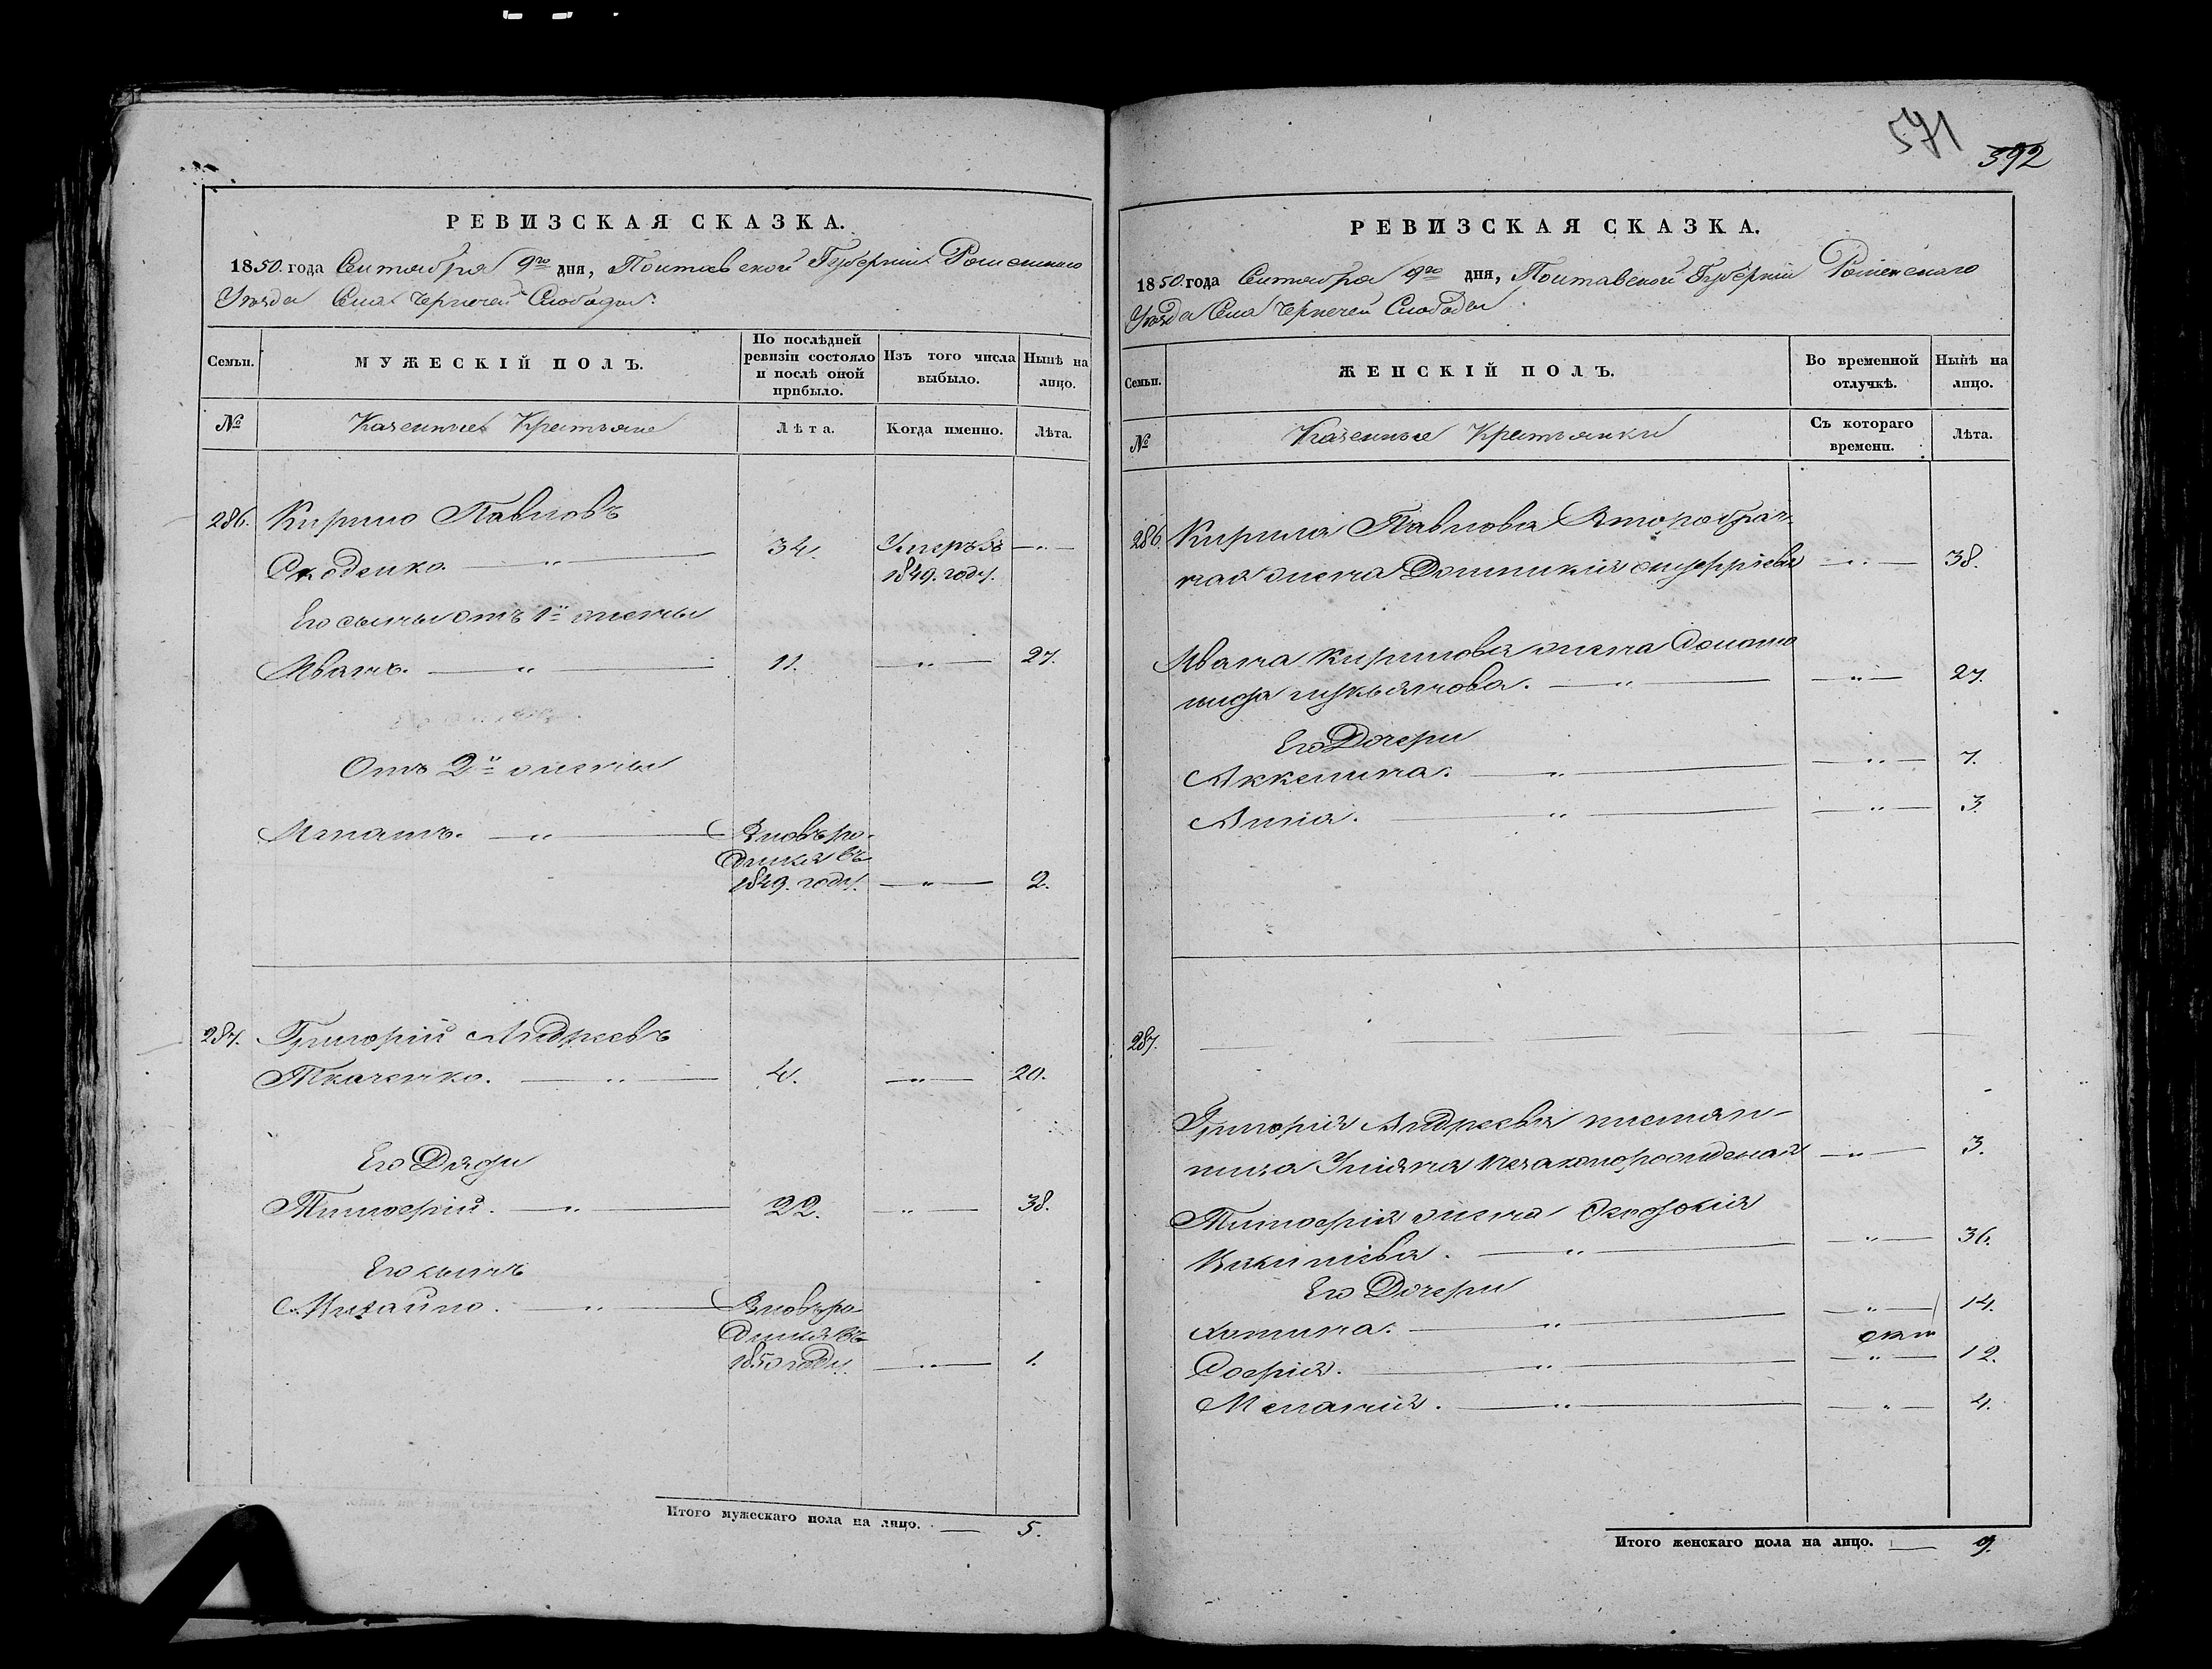 571
392
РЕВИЗСКАЯ СКАЗКА.
1850 года Сентября 9го дня, Полтавской Губерніи Роменскаго
Уѣзда Села Чернечей Слободы.
Семьи. МУЖЕСКІЙ ПОЛЪ. По послѣдней ревизіи состояло и послѣ оной прибыло. Изъ того числа выбыло. Нынѣ на лицо.
№ Казенные Крестьяне Лѣта. Когда именно. Лѣта.
286. Кирило Павловъ
Скоденко. — " — 34. Умеръ въ — " —
1849. году.
Его сыны отъ 1й жены
Иванъ. — " — 11. — " — 27.
Отъ 2й жены
Игнатъ. — " — Вновь ро-
дился въ
1849. году. — " — 2.
287. Григорій Андреевъ
Ткаченко. — " — 4. — " — 20.
Его Дядя
Тимофей. — " — 22. — " — 38.
Его сынъ
Михайло. — " — Вновь ро-
дился въ
1850 году. — " — 1.
Итого мужескаго пола на лицо. — 5.
РЕВИЗСКАЯ СКАЗКА.
1850. года Сентября 9го дня, Полтавской Губерніи Роменскаго
Уѣзда Села Чернечей Слободы
Семьи. ЖЕНСКІЙ ПОЛЪ. Во временной отлучкѣ. Нынѣ на лицо.
№ Казенные Крестьянки Съ котораго времени. Лѣта.
286. Кирила Павлова Второбрач-
ная жена Домникія — " — 38.
Ивана Кирилова жена
Лукьянова. — " — — " — 27.
Его Дочери
Аккелина. — " — — " — 7.
Анна. — " — — " — 3.
287.
Григорія Андреева племян-
ница Уліяна незаконорожденая — " — 3.
Тимофея жена Евдокія
— " — — " — 36.
Его Дочери
— " — — " — 14.
Софія. — " — — " — 12.
Меланія. — " — — " — 4.
Итого женскаго пола на лицо. — 9.